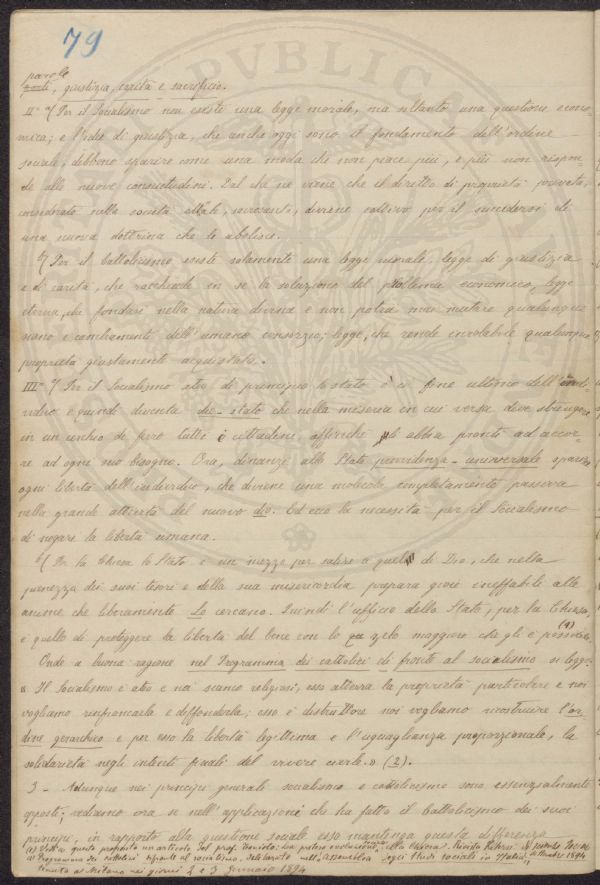 79
parole
, giustizia, carità e sacrificio.
II° a) Per il Socialismo non esiste una legge morale, ma soltanto una questione econo-
mica; e l'idee di giustizia, che anche oggi sono il fondamento dell'ordine
sociale, debbono sparire come una moda che non piace più, e più non rispon-
de alle nuove consuetudini. Dal che ne viene che il diritto di proprietà privata,
considerato nella società attuale, sacrosanto, diviene cattivo per il succedersi di
una nuova dottrina che lo abolisce.
b) Per il Cattolicismo esiste solamente una legge morale, legge di giustizia
e di carità, che racchiude in se la soluzione del problema economico, legge
eterna, che fondasi nella natura divina e non potrà mai mutare qualunque
siano i cambiamenti dell'umano consorzio; legge, che rende inviolabile qualunque
proprietà giustamente acquistata.
III° a) Per il Socialismo ateo di principio lo stato è il fine ultimo dell'indi-
viduo e quindi diventa dio-stato che nella miseria in cui versa deve stringere
in un cerchio di ferro tutti i cittadini, affinchè li abbia pronti ad accor-
re ad ogni suo bisogno. Ora, dinanzi allo Stato provvidenza-universale sparisce
ogni libertà dell'individuo, che diviene una molecola completamente passiva
nella grande attività del nuovo dio. Ed ecco la necessità per il Socialismo
di negare la libertà umana.
b) Per la Chiesa lo Stato è un mezzo per salire a quello di Dio, che nella
pienezza dei suoi tesori e della sua misericordia prepara gioie ineffabili alle
anime che liberamente Lo cercano. Quindi l'ufficio dello Stato, per la Chiesa,
è quello di proteggere la libertà del bene con lo zelo maggiore che gli è possibile. (1)
Onde a buona ragione nel Programma dei cattolici di fronte al socialismo si legge:
« Il Socialismo è ateo e noi siamo religiosi; esso atterra la proprietà particolare e noi
vogliamo rinfrancarla e diffonderla; esso è distruttore noi vogliamo ricostruire l'or-
dine gerarchico e per esso la libertà legittima e l'uguaglianza proporzionale, la
solidarietà negli intenti finali del vivere civile. » (2).
3 - Adunque nei principi generali socialismo e cattolicismo sono essenzialmente
opposti; vediamo ora se nell'applicazione che ha fatto il Cattolicismo dei suoi
principi, in rapporto alla questione sociale esso mantenga questa differenza
(1) Vedi a questo proposito un articolo del prof. Toniolo: alla Chiesa. Rivista Intern. di scienze Sociali
(2) Programma dei cattolici di fronte al socialismo, deliberato nell'Assemblea degli Studi sociali in Italia, 1894
tenuta a Milano nei giorni 2 e 3 Gennaio 1894